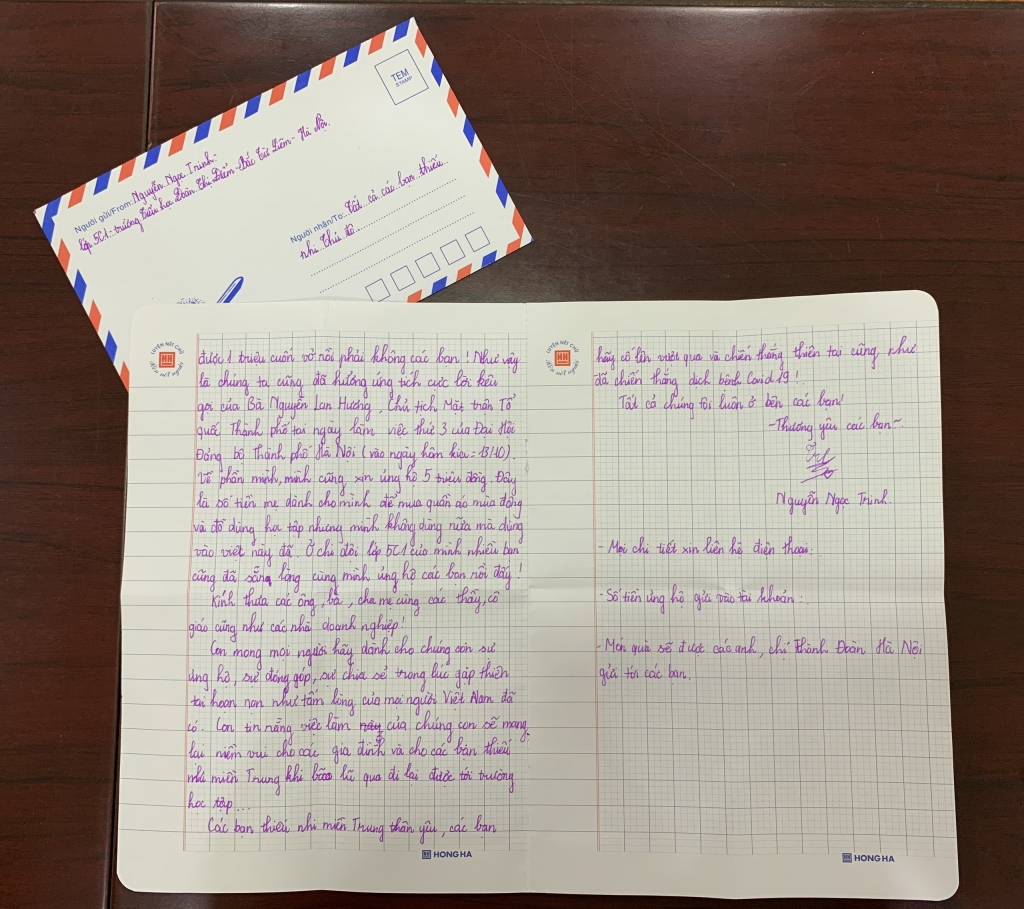 TEM
STAMP
Người gửi/From: Nguyễn Ngọc Trinh-
lớp 5C1- trường Tiểu học Đoàn Thị Điểm- Bắc Từ Liêm- Hà Nội.
Người nhận/To: Tất cả các bạn thiếu
nhi Thủ đô
LUYỆN NÉT CHỮ
HH
RÈN NẾT NGƯỜI
được 1 triệu cuốn vở rồi phải không các bạn! Như vậy
là chúng ta cũng đã hưởng ứng tích cực lời kêu
gọi của Bà Nguyễn Lan Hương, Chủ tịch Mặt trận Tổ
quốc Thành phố tại ngày làm việc thứ 3 của Đại Hội
Đảng bộ Thành phố Hà Nội (vào ngày hôm kia: 13/10).
Về phần mình, mình cũng xin ủng hộ 5 triệu đồng. Đây
là số tiền mẹ dành cho mình để mua quần áo mùa đông
và đồ dùng học tập nhưng mình không dùng nữa mà dùng
vào việc này đã. Ở chi đội lớp 5C1 của mình nhiều bạn
cũng đã sẵn lòng cùng mình ủng hộ các bạn rồi đấy!
Kính thưa các ông, bà, cha mẹ cùng các thầy, cô
giáo cũng như các nhà doanh nghiệp!
Con mong mọi người hãy dành cho chúng con sự
ủng hộ, sự đóng góp, sự chia sẻ trong lúc gặp thiên
tai hoạn nạn như tấm lòng của mọi người Việt Nam đã
có. Con tin rằng việc làm này của chúng con sẽ mang
lại niềm vui cho các gia đình và cho các bạn thiếu
nhi miền Trung khi bão lũ qua đi lại được tới trường
học tập...
Các bạn thiếu nhi miền Trung thân yêu, các bạn
HONG HA
LUYỆN NÉT CHỮ
HH
RÈN NẾT NGƯỜI
hãy cố lên vượt qua và chiến thắng thiên tai cũng như
đã chiến thắng dịch bệnh Covid 19!
Tất cả chúng tôi luôn ở bên các bạn!
-Thương yêu các bạn~
Nguyễn Ngọc Trinh.
- Mọi chi tiết xin liên hệ điện thoại:
- Số tiền ủng hộ gửi vào tài khoản:
- Món quà sẽ được các anh, chị Thành Đoàn Hà Nội
gửi tới các bạn.
HONG HA